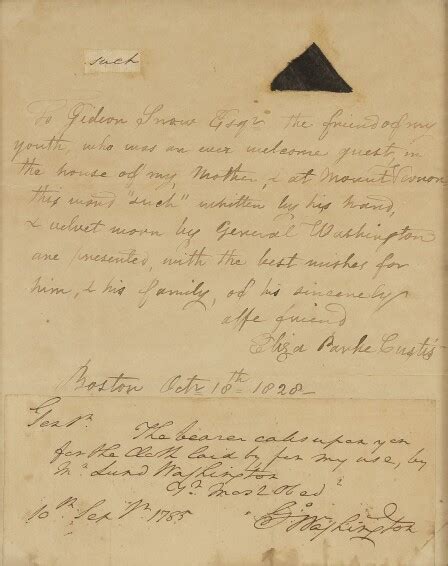 such
To Gideon Snow Esqr the friend of my
youth, who was an ever welcome guest, in
the house of my Mother, & at Mount Vernon
this word "such" written by his hand,
& velvet worn by General Washington
are presented, with the best wishes for
him, & his family, of his sincerely
affe friend
Eliza Parke Custis
Boston Octr 18th 1828
Gentn
The bearer calls upon you
for the cloth laid by for my use, by
Mr Lund Washington
Yr Most Obed
10th Sepr 1785 Go Washington